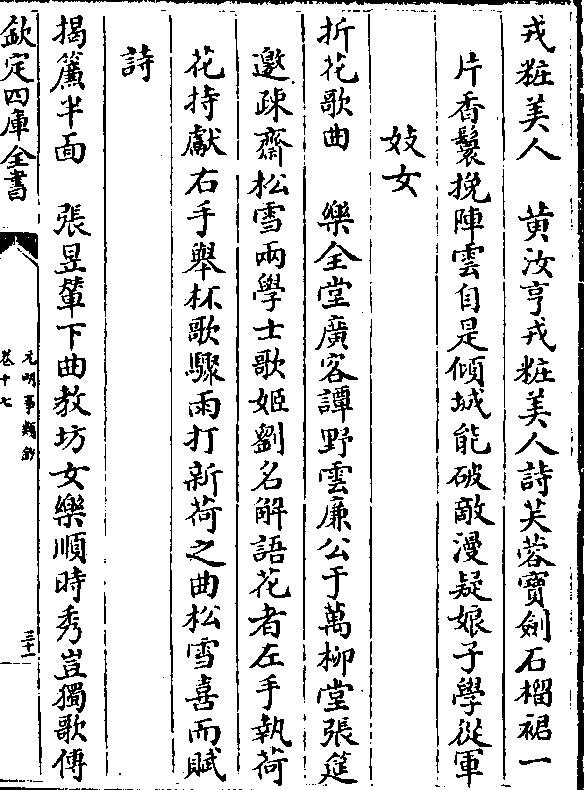 戎粧美人　黄汝亨戎粧美人詩芙蓉寳劍石榴裙一
片香鬟挽陣雲自是傾城能破敵漫疑娘子學從軍
妓女
折花歌曲　樂全堂廣客譚野雲廉公于萬柳堂張筵
邀疎齋松雪兩學士歌姬劉名解語花者左手執荷
花持獻右手舉杯歌驟雨打新荷之曲松雪喜而賦
詩
揭簾半面　張昱輦下曲教坊女樂順時秀豈獨歌傳
欽定四庫全書
元明事類鈔
卷十七
三十一